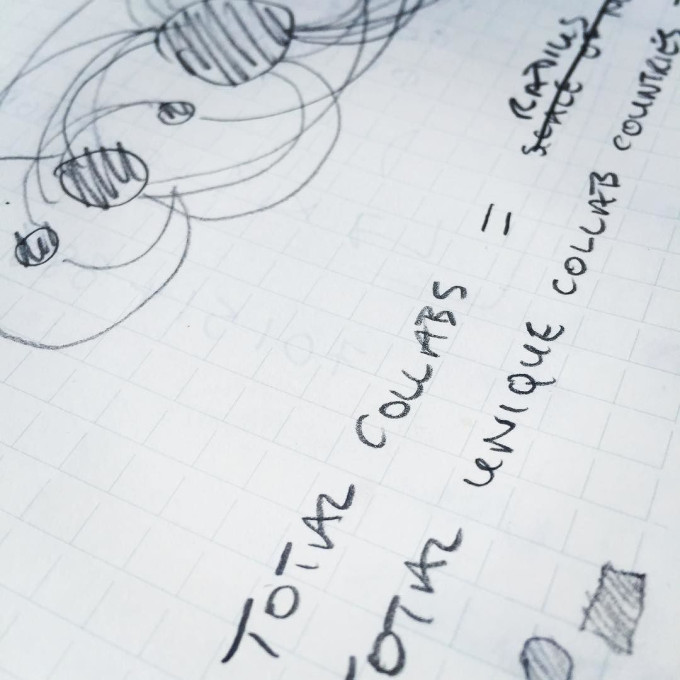 TOTAL COLLABS = RADIUS
TOTAL UNIQUE COLLAB COUNTRIES